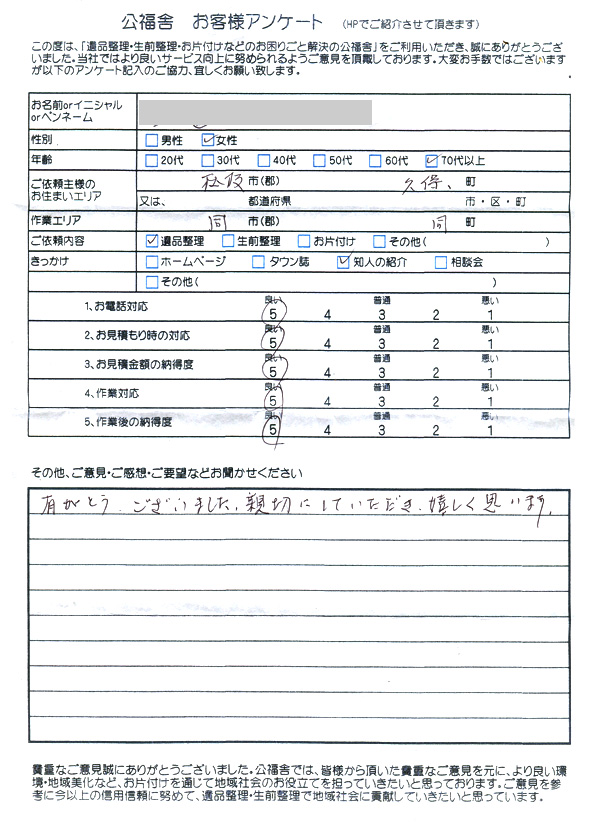 公福舎 お客様アンケート (HPでご紹介させて頂きます)
この度は、「遺品整理・生前整理・お片付けなどのお困りごと解決の公福舎」をご利用いただき、誠にありがとうござ
いました。当社ではより良いサービス向上に努められるようご意見を頂戴しております。大変お手数ではございます
が以下のアンケート記入のご協力、宜しくお願い致します。
お名前orイニシャル
orペンネーム
性別 男性 女性
年齢 20代 30代 40代 50代 60代 70代以上
ご依頼主様の
お住まいエリア
松阪 市(郡) 久保、 町
又は、 都道府県 市・区・町
作業エリア 同 市(郡) 同 町
ご依頼内容 遺品整理 生前整理 お片付け その他( )
きっかけ ホームページ タウン誌 知人の紹介 相談会
その他( )
良い 普通 悪い
1、お電話対応 5 4 3 2 1
良い 普通 悪い
2、お見積もり時の対応 5 4 3 2 1
良い 普通 悪い
3、お見積金額の納得度 5 4 3 2 1
良い 普通 悪い
4、作業対応 5 4 3 2 1
良い 普通 悪い
5、作業後の納得度 5 4 3 2 1
その他、ご意見・ご感想・ご要望などお聞かせください
有がとう、ございました、親切にしていただき、嬉しく思います。
貴重なご意見誠にありがとうございました。公福舎では、皆様から頂いた貴重なご意見を元に、より良い環
境・地域美化など、お片付けを通じて地域社会のお役立てを担っていきたいと思っております。ご意見を参
考に今以上の信用信頼に努めて、遺品整理・生前整理で地域社会に貢献していきたいと思っています。